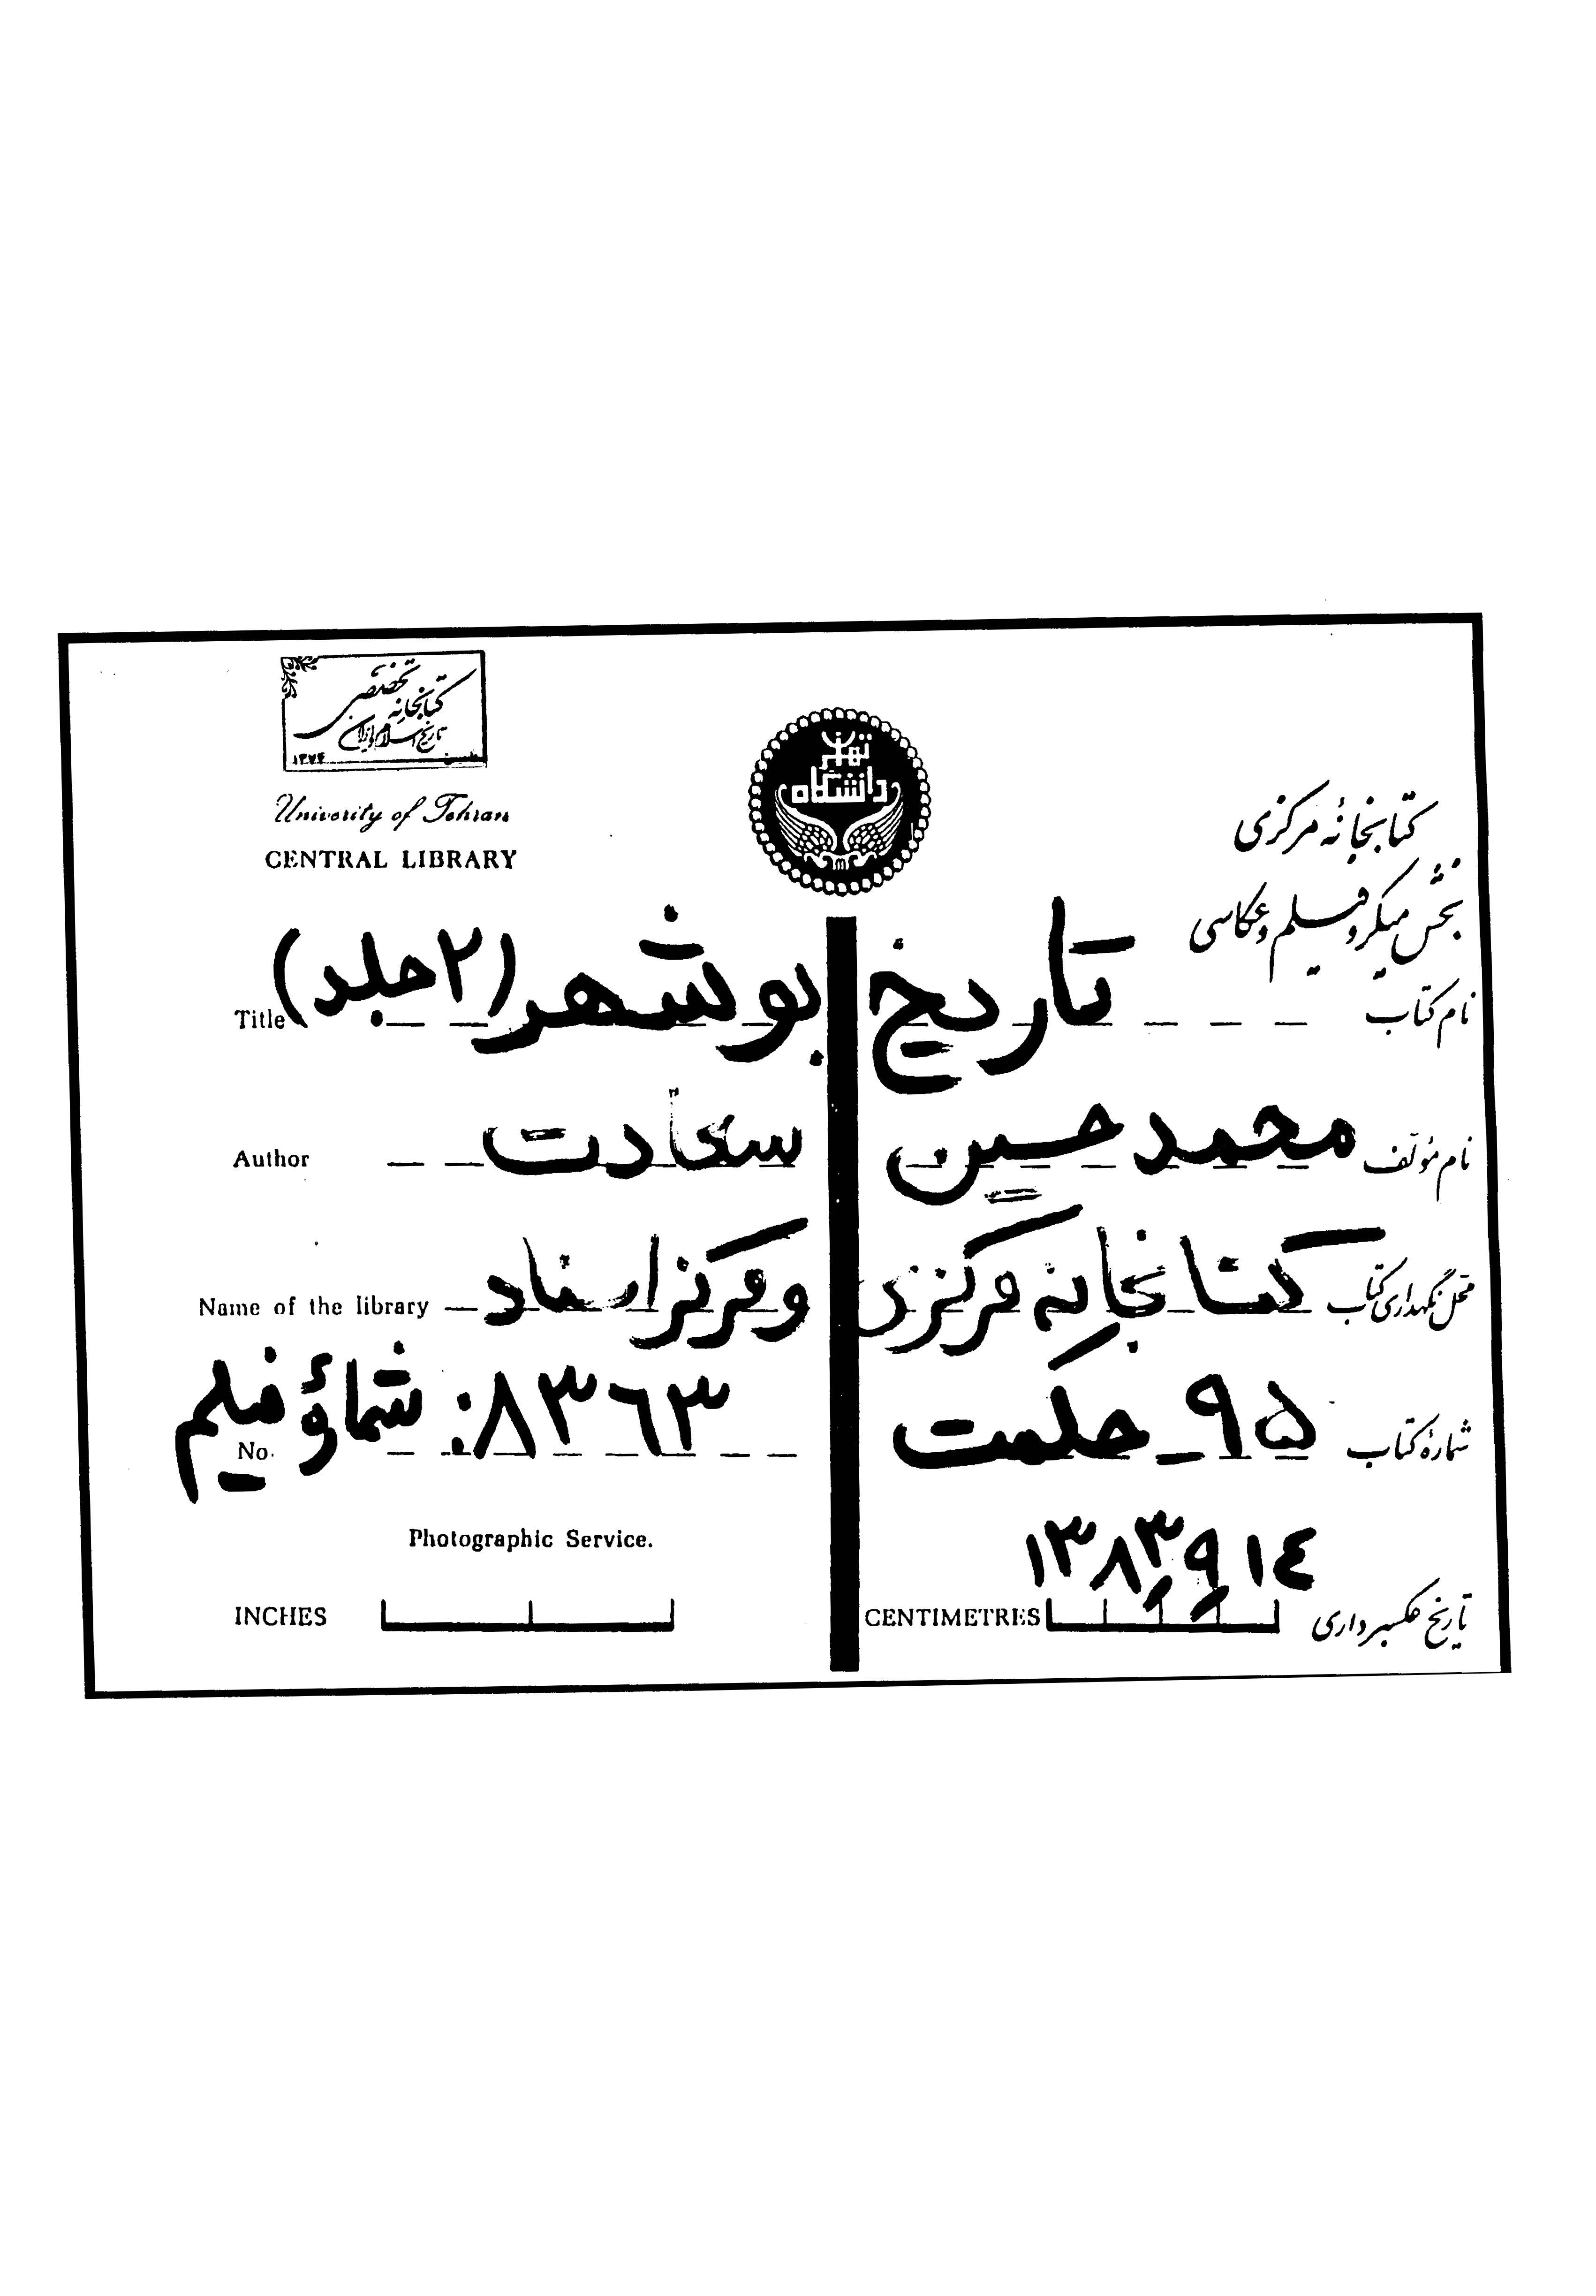 کتابخانه تخصصی
تاریخ اسلام و ایران
۱۳۷۴
تهران
دانشگاه
Univerity of Tehran
CENTRAL LIBRARY
کتابخانهٔ مرکزی
بخش میکروفیلم و عکاسی
نام کتاب تاریخ بوشهر (۲ جلد) Title
نام مؤلف محمد حسین سعادت Author
محل نگهداری کتاب کتابخانه مرکزی و مرکز اسناد Name of the library
شمارهٔ کتاب ۹۵ـ حکمت شمارهٔ فیلم: ۸۳۶۳ No.
Photographic Service.
تاریخ عکسبرداری ۱۳۸۳/۹/۱۴
CENTIMETRES
INCHES